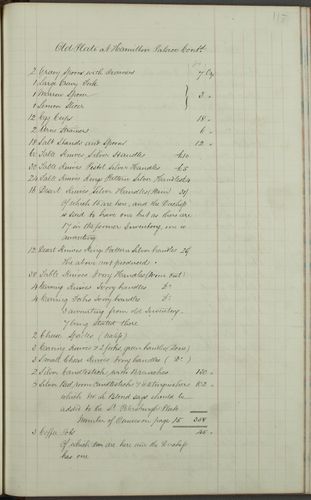 115
Old Plate at Hamilton Palace Contd
2 Gravy Spoons with drainers 7
1 Large Gravy Fork
1 Marrow Spoon 3
1 Lemon Slicer
12 Egg Cups 18
2 Urns Strainers 6
18 Salt Stands and Spoons 12
60 Table Knives Silver Handles
30 Table Knives Pistol Silver Handles
24 Table Knives Kings Pattern Silver Handles
18 Desert Knives Silver Handles
Of which 16 are here, and the Duchess
is said to have one but as there are
17 in the former Inventory, one is
awanting
12 Desert Knives Kings Pattern Silver handles
The above not produced
38 Table Knives Ivory Handles (Worn out)
4 Carving Knives Ivory handles Do
4 Carving Forks Ivory handles Do
1 awanting from old Inventory,
7 being Stated there
2 Cheese
2 Carving Knives & 2 forks, green handles
3 Small Cheese Knives bony handles (Do)
2 Silver Candlesticks with Branches 120
3 Silver Bed room Candlesticks & Extinguishers
which Mr le Blond says should be
added to the St Petersburgh Plate
Number of Ounces on page 15 308
3 Coffee Pots 45
Of which two are here and the Duchess
has one